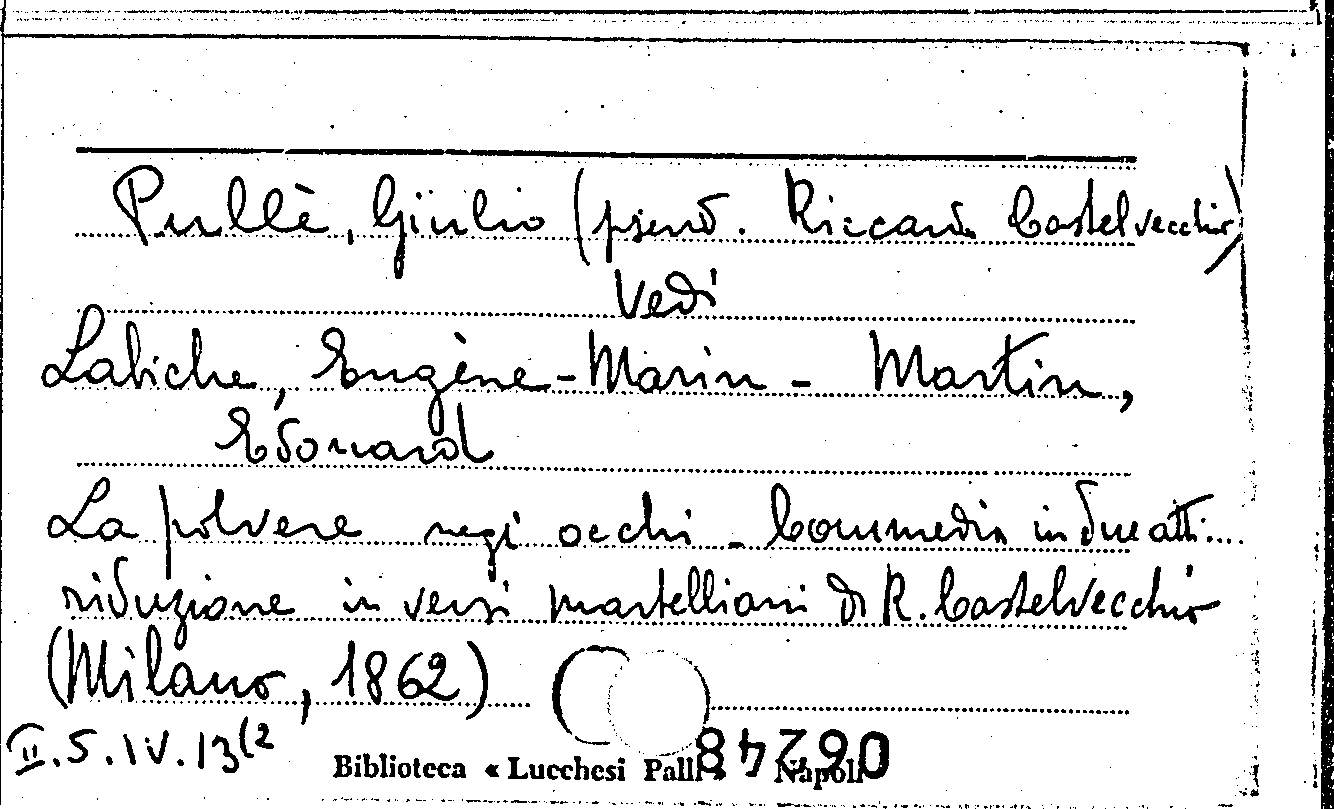 Pullè, Giulio (pseud. Riccardo Castelvecchio)
Vedi
Labiche, Eugène-Marin-Martin,
Edouard
La polvere negi occhi - Commedia in due atti....
riduzione in versi martelliani di R. Castelvecchio
(Milano, 1862)
II.5.IV.13(2
Biblioteca « Lucchesi Palli » Napoli
06248